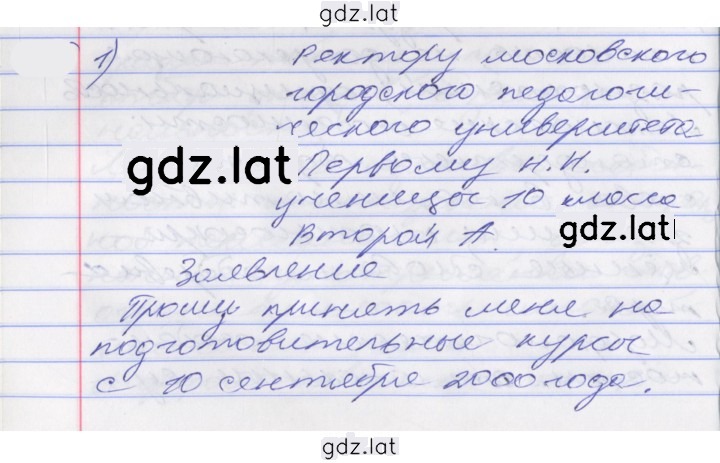 gdz.lat
1) Ректору московского
городского педагоги-
ческого университета
gdz.lat Первому Н.Н.
ученицы 10 класса
Второй А. gdz.lat
Заявление
Прошу принять меня на
подготовительные курсы
с 10 сентября 2000 года.
gdz.lat